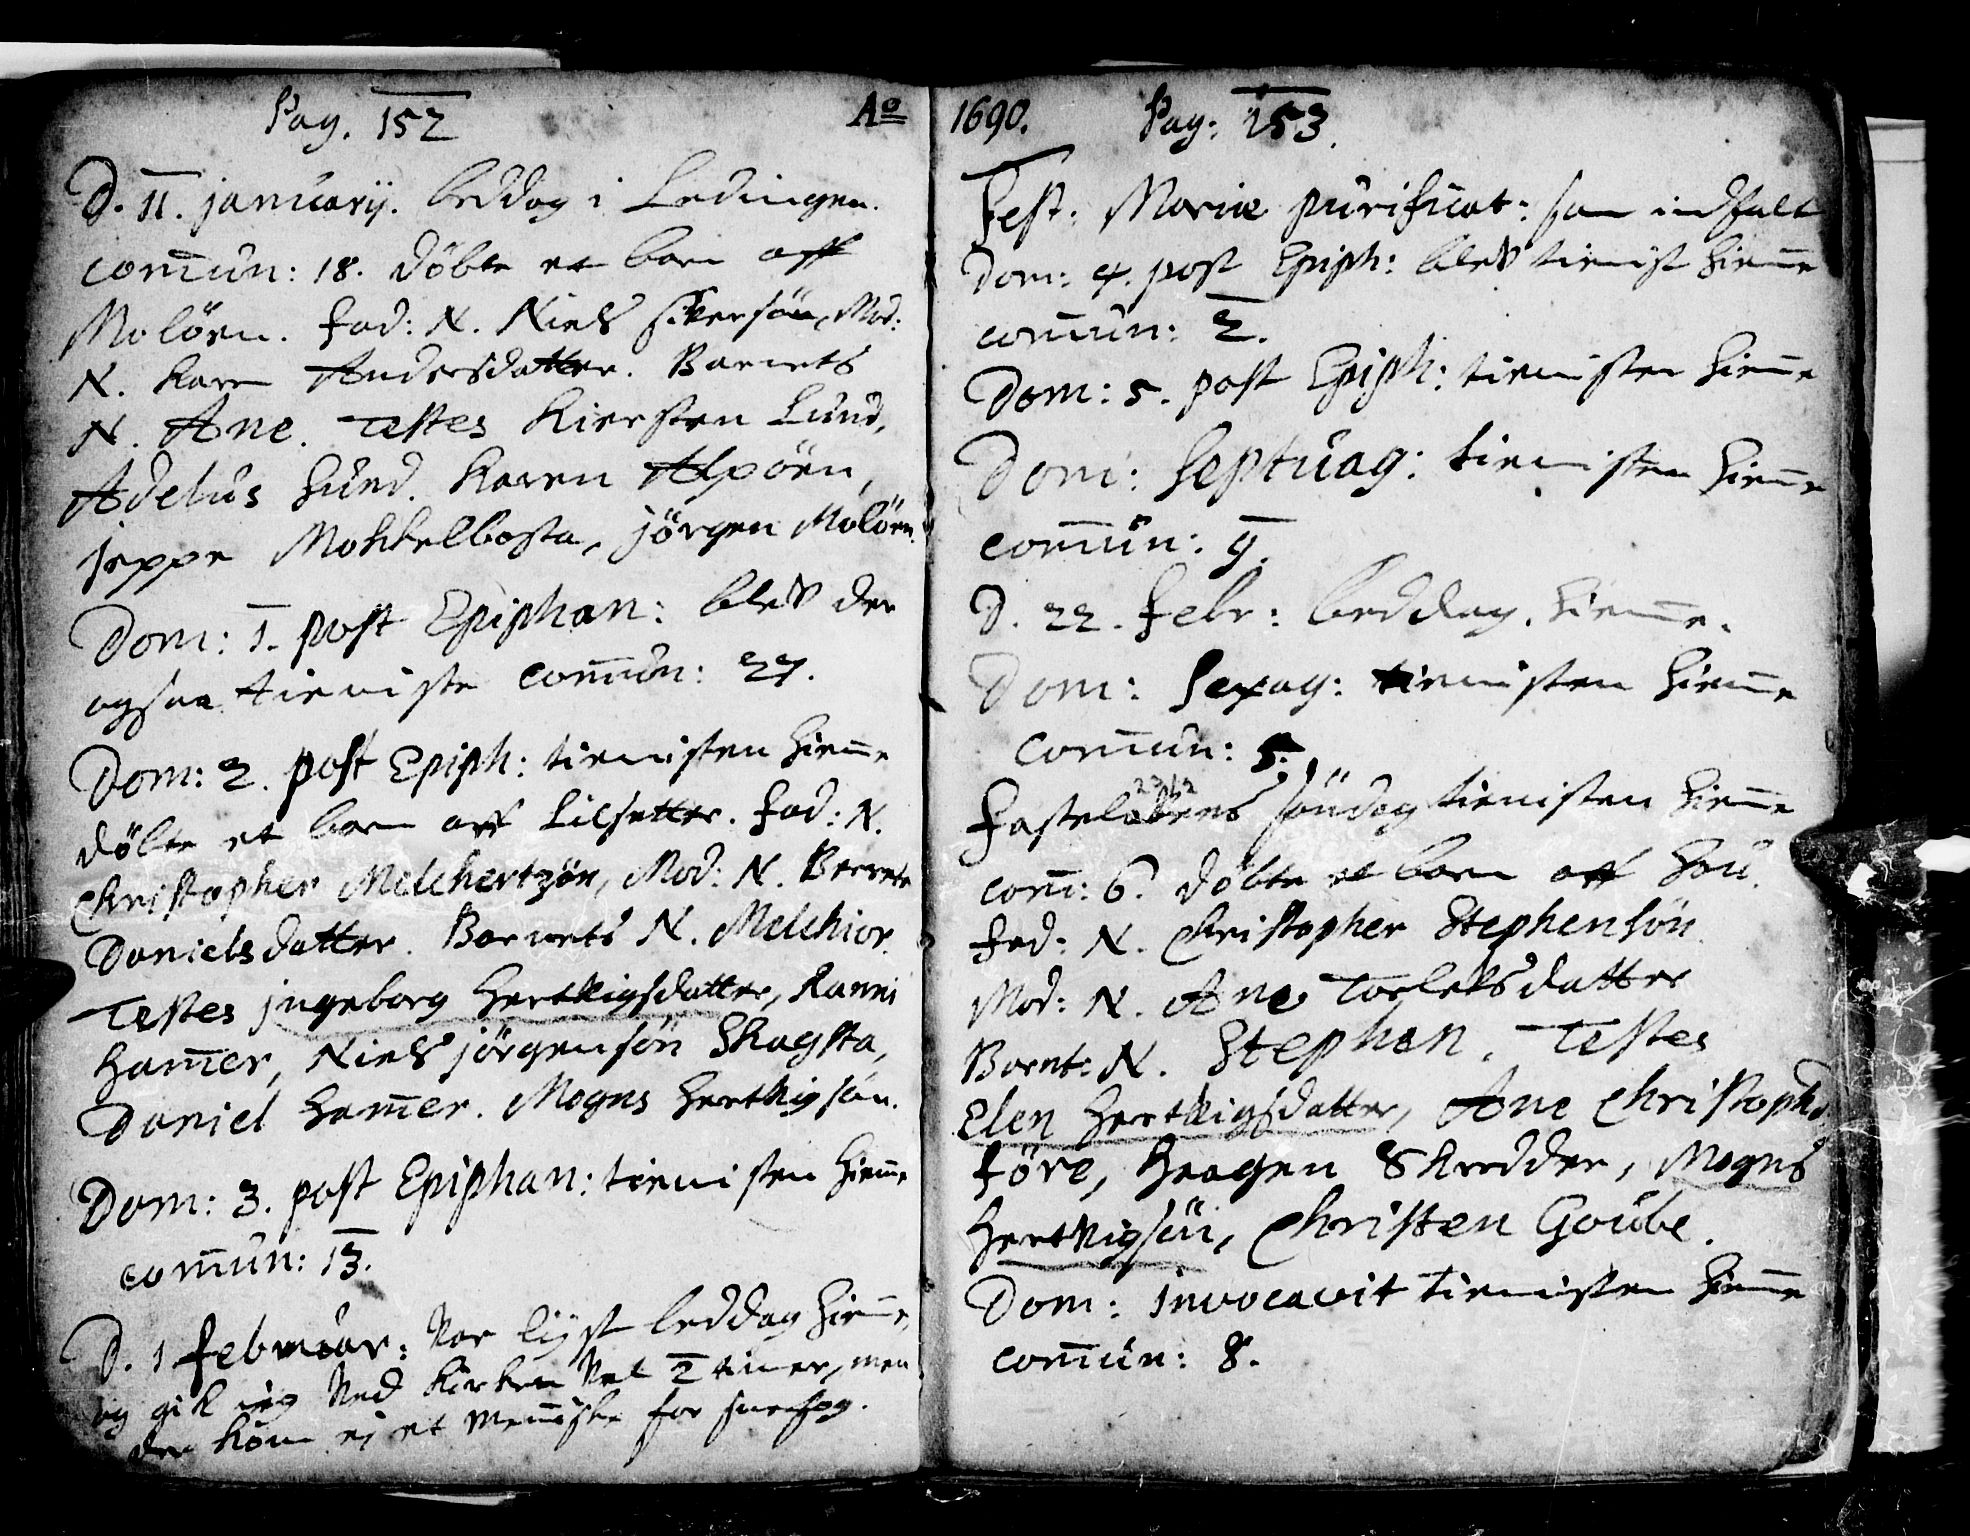 Pag. 152
D. 11. januarij. beddag i Lødingen.
com̄un: 18. döbte et barn aff
Molöen. Fad: N. Niels siversön, Mod:
N. Karen Andersdatter. Barnets
N. Ane. Testes Kiersten Lund,
Adelus hund. Karen Alpöen,
jeppe Mokkelbosta, jörgen Molöen.
Dom: 1. post Epiphan: blev der
ogsaa tieniste com̄un: 27.
Dom: 2. post Epiph: tienisten hiem̄e
döbte et barn aff Lilsetter. fad: N.
Christopher Melchertzön, Mod: N. Berrete
Danielsdatter. Barnets N. Melchior.
Testes jngeborg Hertvigsdatter, Ranni
ham̄er, Niels jörgensön Skagsta,
Daniel ham̄er. Mogns Hertvigsön.
Dom: 3. post Epiphan: tienisten hiem̄e
com̄un: 13.
D. 1 februar: var lyst beddag hiem̄e,
og gik jeg ved kirken vel 2 timer, men
der kom ej et men̄iske for snefog.
Ao 1690. Pag: 153.
Fest: Mariæ purificat: som indfalt
Dom: 4. post Epiph: blev tienist hiem̄e
com̄un: 2.
Dom: 5. post Epiph: tienisten hiem̄e
Dom: Septuag: tienisten hiem̄e
com̄un: 9.
D. 22. febr: beddag. hiem̄e.
Dom: Sexag: tienisten hiem̄e
com̄un: 5.
Fastelavens söndag tienisten hiem̄e
com̄: 6. döbte et barn aff Hou.
fad: N. Christopher Stephensön
Mod: N. Ane Torlevsdatter
Barnt: N. Stephen. Testes
Elen Hertvigsdatter, Ane Christoph:
före, Haagen Skredder, Mogns
Hertvigsön, Christen Goube.
Dom: invocavit tienisten hiem̄e
com̄un: 8.